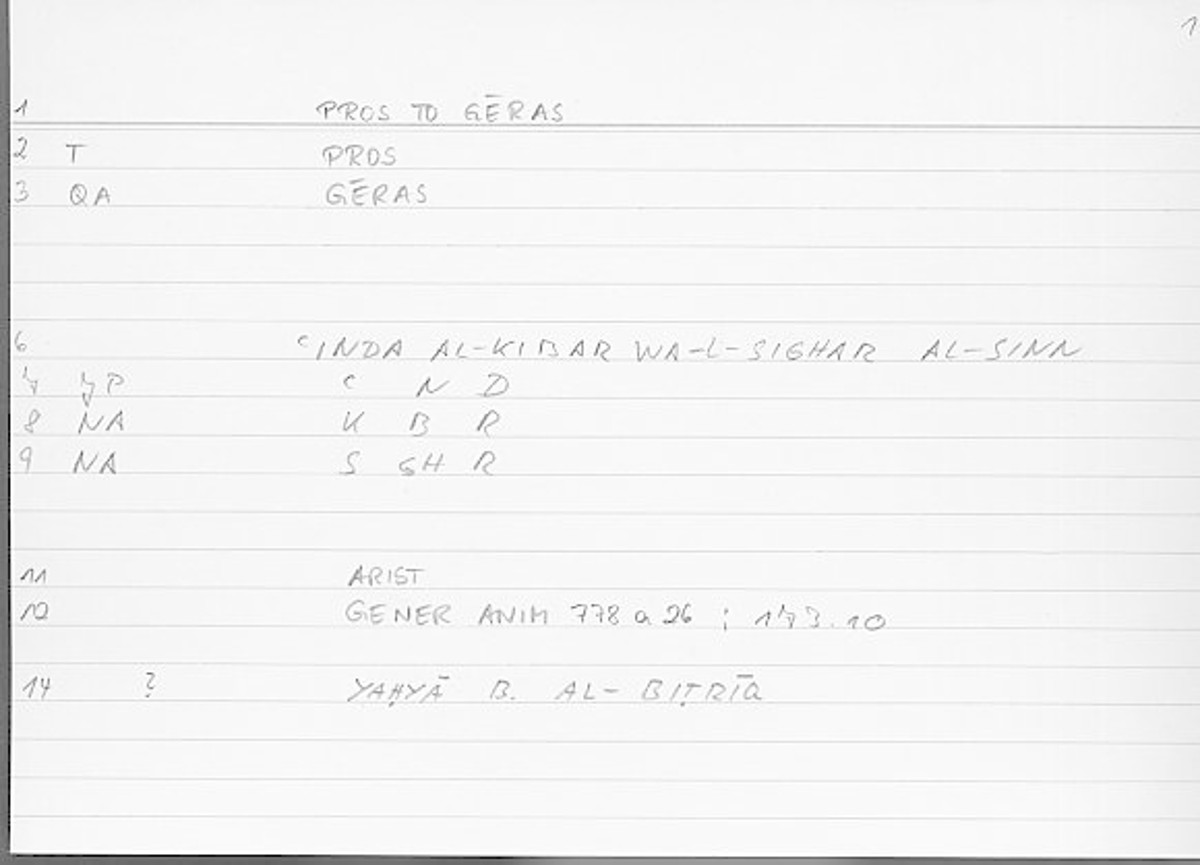 1
1 PROS TO GĒRAS
2 T PROS
3 QA GĒRAS
6 ʿINDA AL-KIBAR WA-L-SIGHAR AL-SINN
7 JP ʿ N D
8 NA K B R
9 NA S GH R
11 ARIST
12 GENER ANIM 778 a 26 ; 173.10
14 ? YAḤYĀ B. AL-BIṬRĪQ